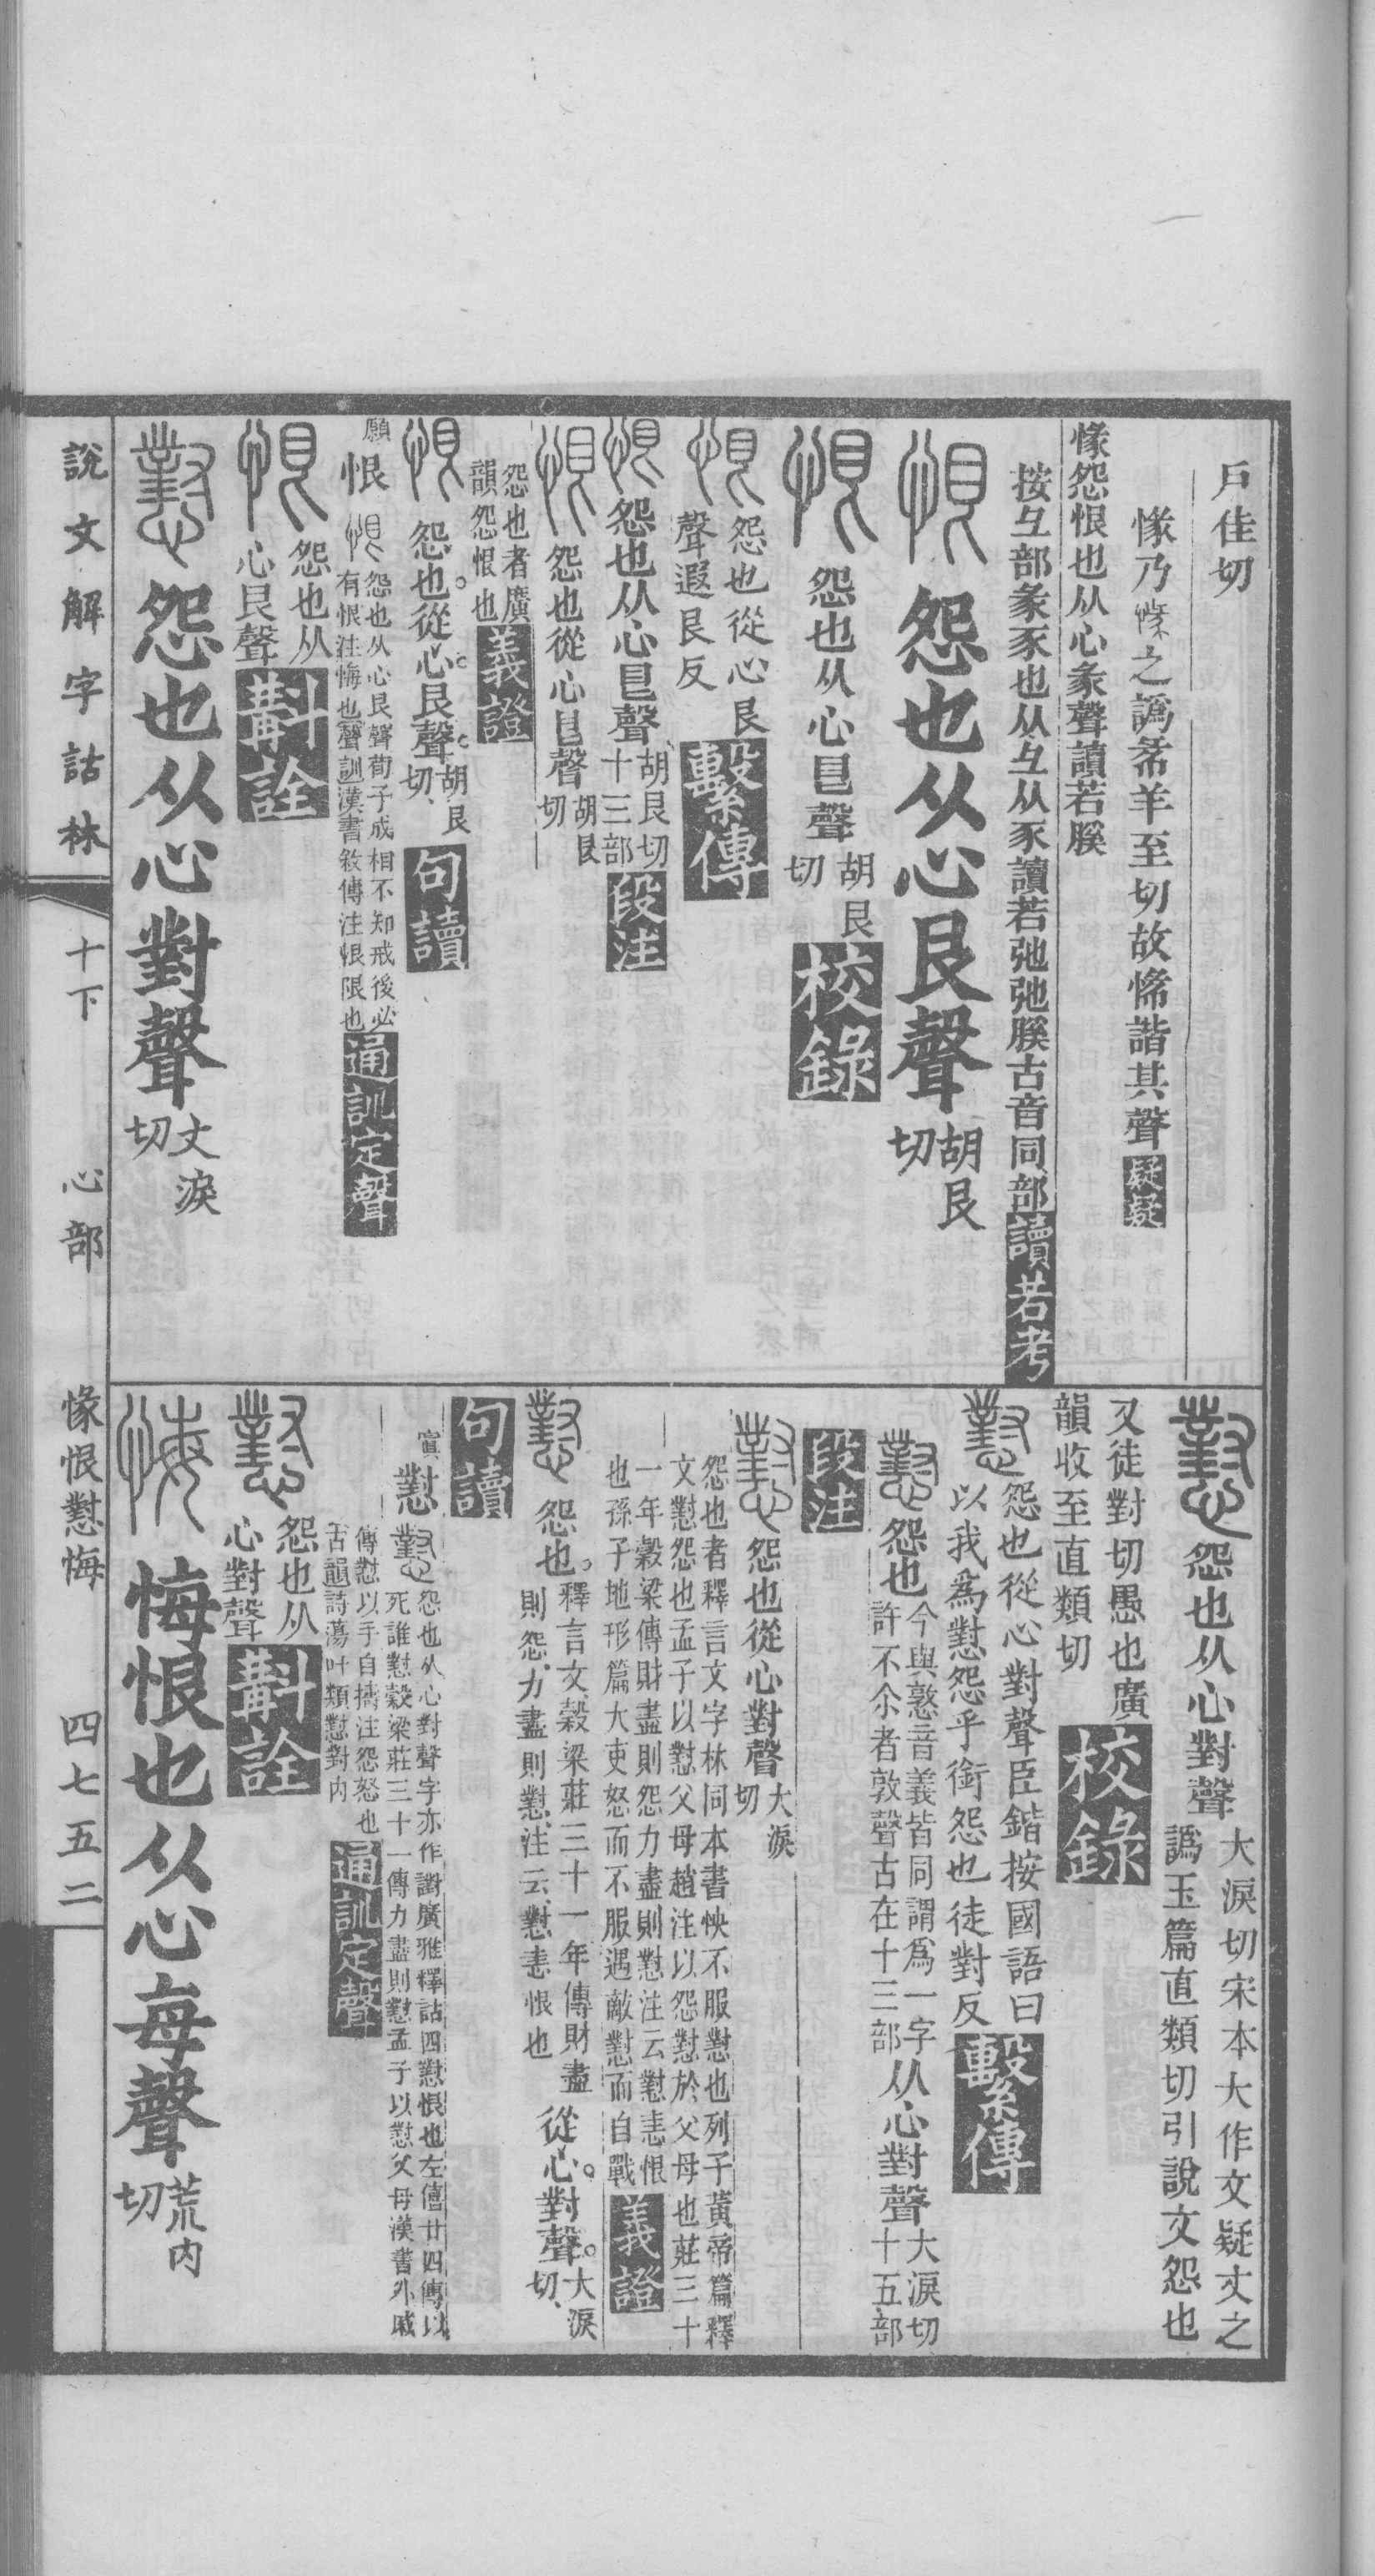 戶佳切
㥟乃㥟之譌㣇羊至切故悕諧其聲疑疑
㥟怨恨也从心彖聲讀若膎
按彑部彖豕也从彑从豕讀若弛弛膎古音同部讀若考
怨也从心艮聲胡艮切
怨也从心皀聲胡艮切校錄
怨也從心艮聲遐艮反繫傳
怨也从心皀聲胡艮切十三部段注
怨也從心皀聲胡艮切
怨也者廣韻怨恨也義證
怨也。從心。艮聲。胡艮切、句讀
願恨怨也从心艮聲荀子成相不知戒後必有恨注悔也聲訓漢書敘傳注恨限也通訓定聲
怨也从心艮聲斠詮
怨也从心對聲丈淚切
怨也从心對聲大淚切宋本大作文疑丈之譌玉篇直類切引說文怨也
又徒對切愚也廣韻收至直類切校錄
怨也從心對聲臣鍇按國語曰以我爲懟怨乎銜怨也徒對反繫傳
怨也今與憝音義皆同謂爲一字許不尒者敦聲古在十三部从心對聲大淚切十五部
段注
怨也從心對聲大淚切
怨也者釋言文字林同本書怏不服懟也列子黃帝篇釋文懟怨也孟子以懟父母趙注以怨懟於父母也莊三十
一年穀梁傳財盡則怨力盡則懟注云懟恚恨也孫子地形篇大吏怒而不服遇敵懟而自戰義證
怨也。釋言文、穀梁莊三十一年傳財盡則怨、力盡則懟、注云、懟恚恨也從心。對聲。大淚切、
句讀
寘懟怨也从心對聲字亦作譵廣雅釋詁四懟恨也左僖廿四傳以死誰懟穀梁莊三十一傳力盡則懟孟子以懟父母漢書外戚
傳懟以手自擣注怨怒也古韻詩蕩叶類懟對内通訓定聲
怨也从心對聲斠詮
悔恨也从心每聲荒内切
說文解字詁林
十下
心部
㥟恨懟悔
四七五二